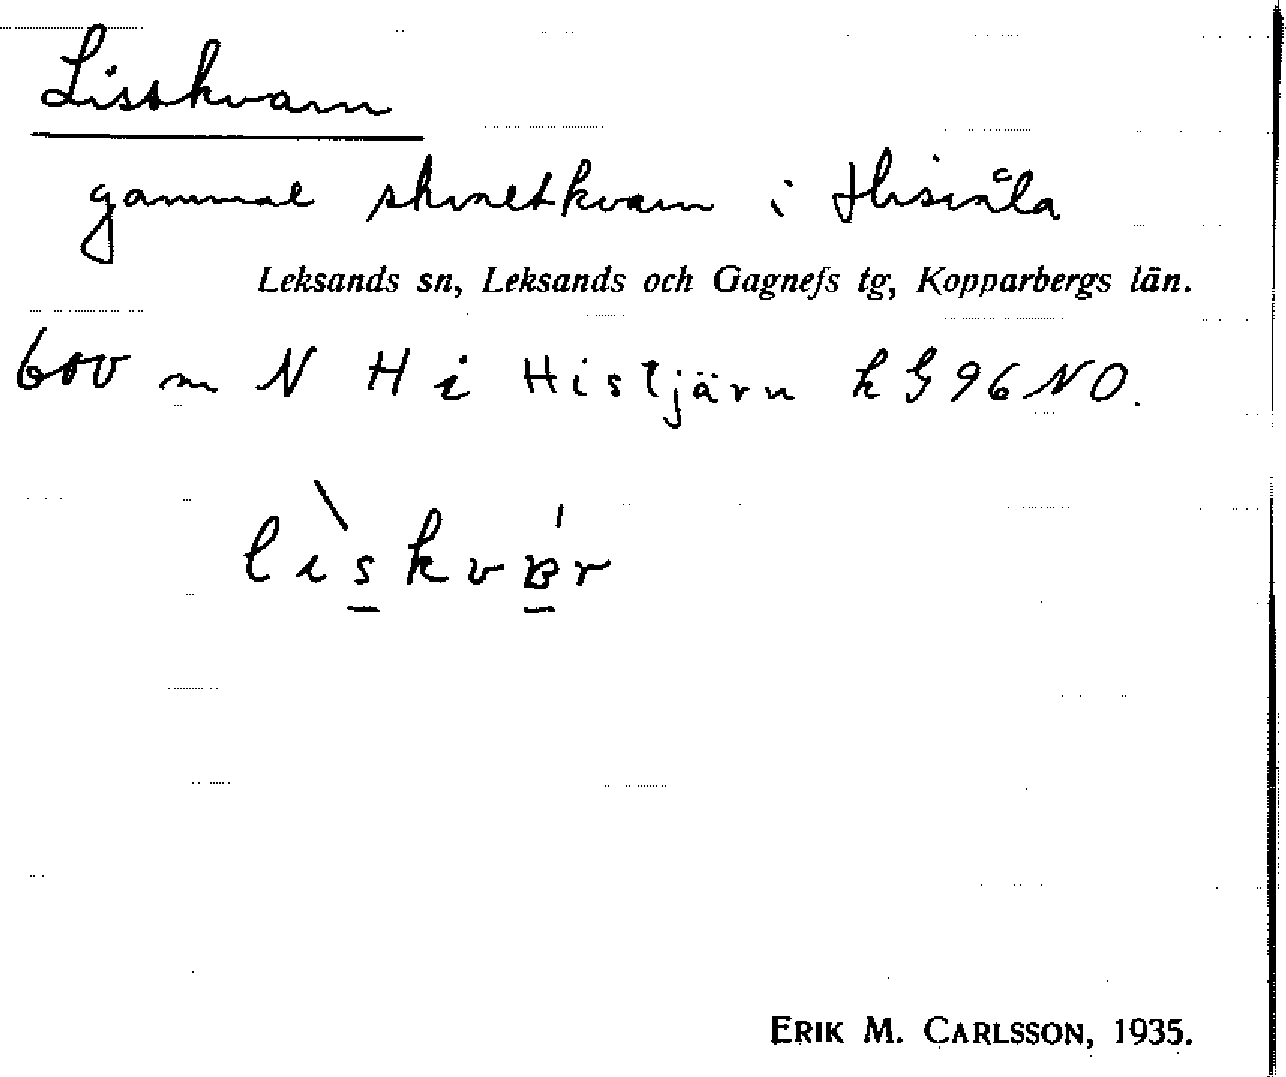 Lisskvarn
gammal skvaltkvarn i Hisvåla
Leksands sn, Leksands och Gagnefs tg, Kopparbergs län.
600 m N H i Histjärn k G 96 NO.
liskvɐr
ERIK M. CARLSSON, 1935.